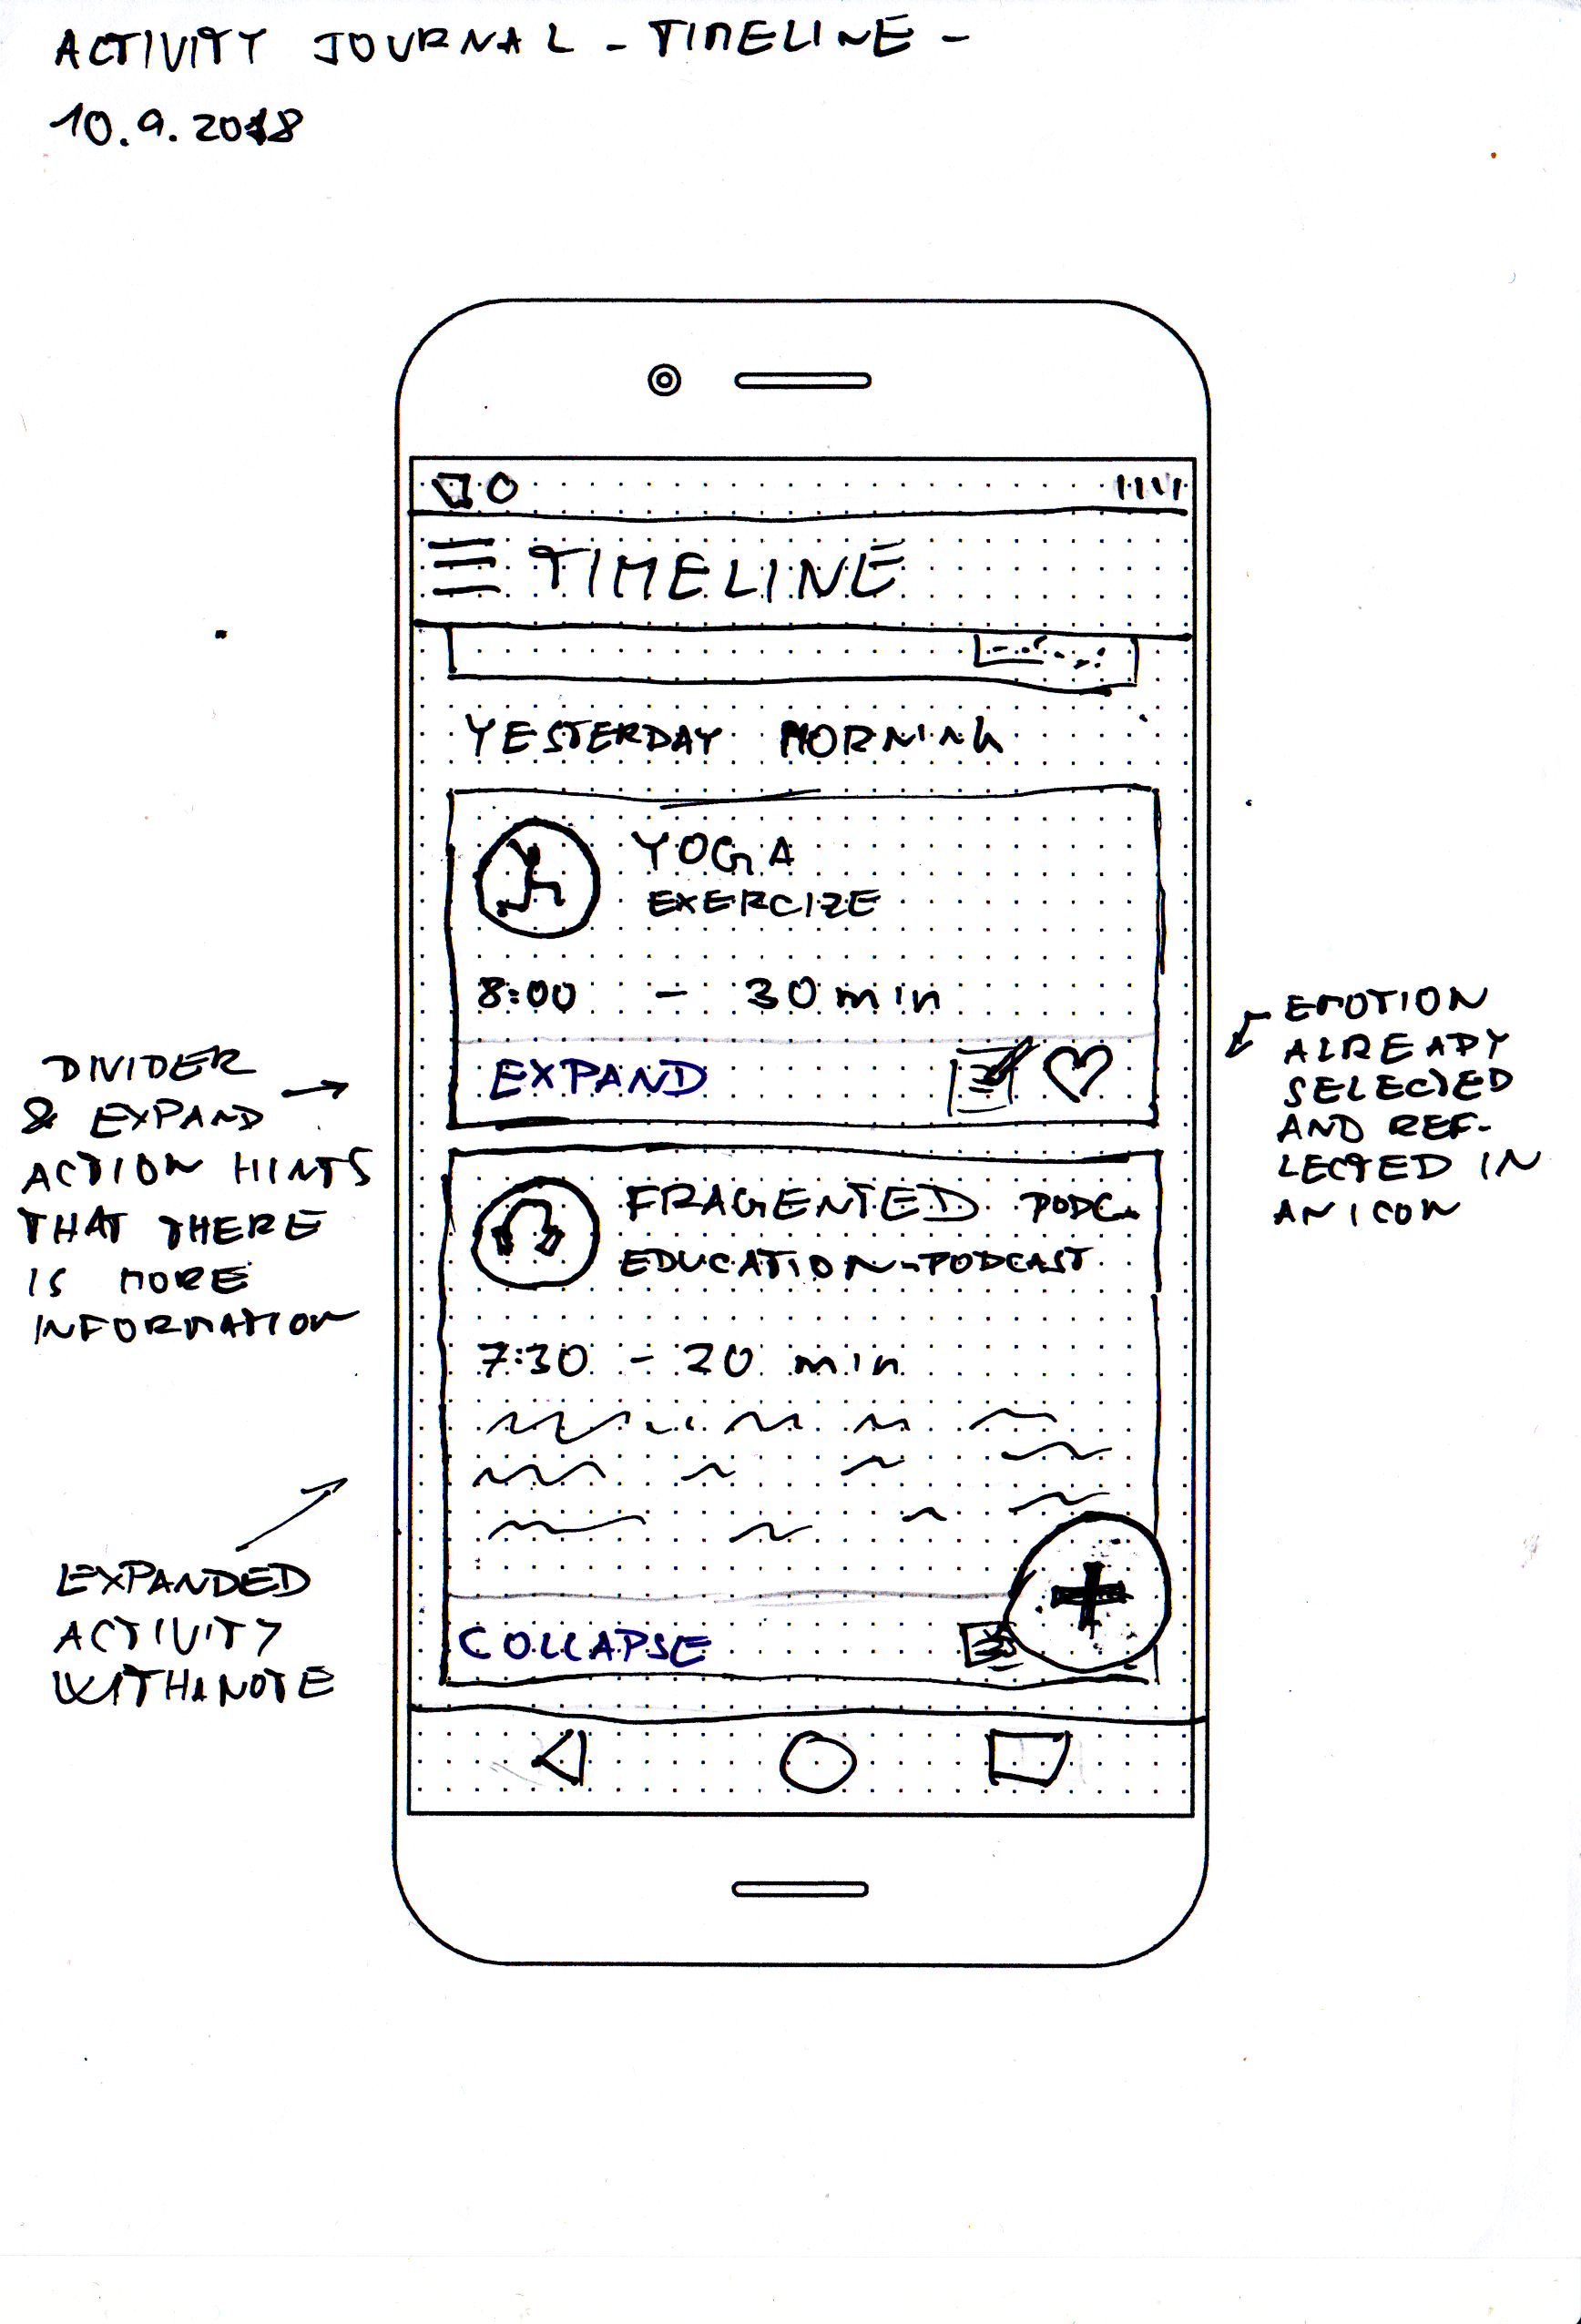 ACTIVITY JOURNAL - TIMELINE -
10.9.2018
TIMELINE
YESTERDAY MORNING
YOGA
EXERCIZE
8:00 - 30 min
EXPAND
FRAGENTED PODC
EDUCATION-PODCAST
7:30 - 20 min
COLLAPSE
DIVIDER
& EXPAND
ACTION HINTS
THAT THERE
IS MORE
INFORMATION
EXPANDED
ACTIVITY
WITH A NOTE
EMOTION
ALREADY
SELECTED
AND REF-
LECTED IN
AN ICON